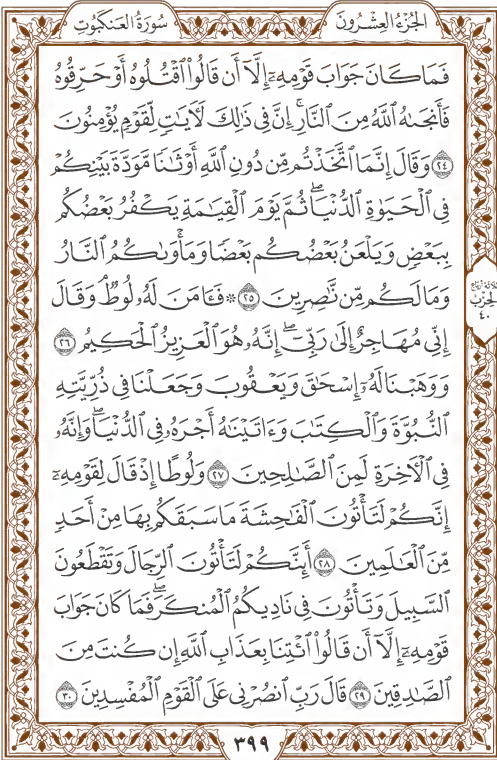 الجُزْءُ العِشْرُونَ
سُورَةُ العَنكَبُوتِ
فَمَا كَانَ جَوَابَ قَوْمِهِۦٓ إِلَّآ أَن قَالُوا۟ ٱقْتُلُوهُ أَوْ حَرِّقُوهُ
فَأَنجَىٰهُ ٱللَّهُ مِنَ ٱلنَّارِۚ إِنَّ فِى ذَٰلِكَ لَـَٔايَـٰتٍ لِّقَوْمٍ يُؤْمِنُونَ
٢٤ وَقَالَ إِنَّمَا ٱتَّخَذْتُم مِّن دُونِ ٱللَّهِ أَوْثَـٰنًا مَّوَدَّةَ بَيْنِكُمْ
فِى ٱلْحَيَوٰةِ ٱلدُّنْيَاۖ ثُمَّ يَوْمَ ٱلْقِيَـٰمَةِ يَكْفُرُ بَعْضُكُم
بِبَعْضٍ وَيَلْعَنُ بَعْضُكُم بَعْضًا وَمَأْوَىٰكُمُ ٱلنَّارُ
وَمَا لَكُم مِّن نَّـٰصِرِينَ ٢٥ ۞ فَـَٔامَنَ لَهُۥ لُوطٌۘ وَقَالَ
إِنِّى مُهَاجِرٌ إِلَىٰ رَبِّىٓۖ إِنَّهُۥ هُوَ ٱلْعَزِيزُ ٱلْحَكِيمُ ٢٦
وَوَهَبْنَا لَهُۥٓ إِسْحَـٰقَ وَيَعْقُوبَ وَجَعَلْنَا فِى ذُرِّيَّتِهِ
ٱلنُّبُوَّةَ وَٱلْكِتَـٰبَ وَءَاتَيْنَـٰهُ أَجْرَهُۥ فِى ٱلدُّنْيَاۖ وَإِنَّهُۥ
فِى ٱلْـَٔاخِرَةِ لَمِنَ ٱلصَّـٰلِحِينَ ٢٧ وَلُوطًا إِذْ قَالَ لِقَوْمِهِۦٓ
إِنَّكُمْ لَتَأْتُونَ ٱلْفَـٰحِشَةَ مَا سَبَقَكُم بِهَا مِنْ أَحَدٍ
مِّنَ ٱلْعَـٰلَمِينَ ٢٨ أَئِنَّكُمْ لَتَأْتُونَ ٱلرِّجَالَ وَتَقْطَعُونَ
ٱلسَّبِيلَ وَتَأْتُونَ فِى نَادِيكُمُ ٱلْمُنكَرَۖ فَمَا كَانَ جَوَابَ
قَوْمِهِۦٓ إِلَّآ أَن قَالُوا۟ ٱئْتِنَا بِعَذَابِ ٱللَّهِ إِن كُنتَ مِنَ
ٱلصَّـٰدِقِينَ ٢٩ قَالَ رَبِّ ٱنصُرْنِى عَلَى ٱلْقَوْمِ ٱلْمُفْسِدِينَ ٣٠
ثلاثة أرباع
الحزب
٤٠
٣٩٩